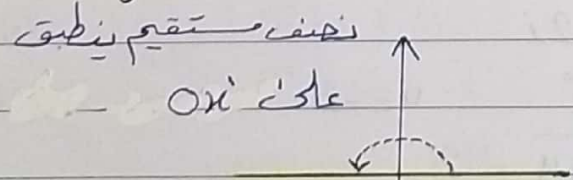 نصف مستقيم ينطبق
على Ox'